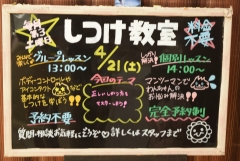 毎月第3土曜日
しつけ教室
料金不要
4/21(土)
グループレッスン
13:00〜
今回のテーマ
正しいしつけ方をマスターしよう!
ボディーコントロールや
アイコンタクトなど
基本的なしつけを学ぼう!!
予約不要
個別レッスン
14:00〜
マンツーマンで
わんちゃんの
お悩み解決!!
完全予約制
質問・相談お気軽にどうぞ♡詳しくはスタッフまで